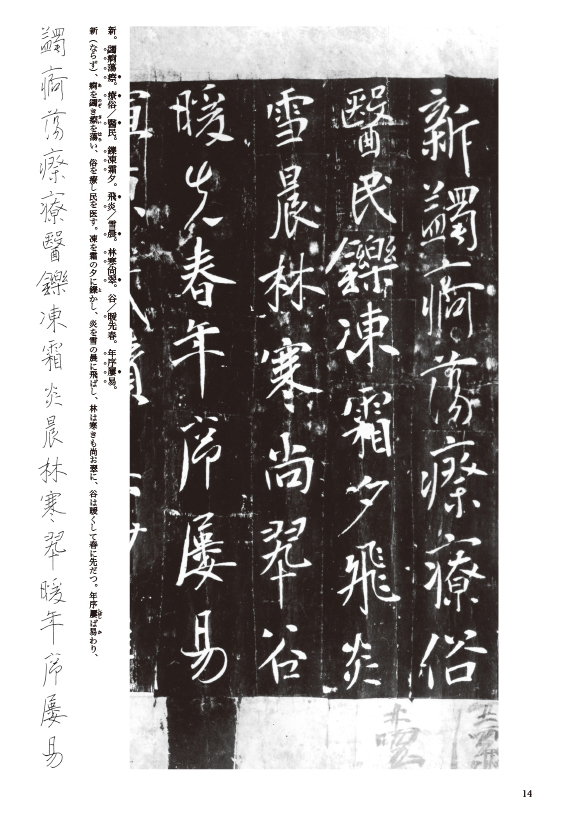 新蠲痾蕩瘵療俗
醫民鑠凍霜夕飛炎
雪晨林寒尚翠谷
暖先春年序屢易
新。蠲痾蕩瘵。療俗／醫民。鑠凍霜夕。飛炎／雪晨。林寒尚翠。谷／暖先春。年序屢易。
新(ならず)、痾を蠲き瘵を蕩い、俗を療し民を医す。凍を霜の夕に鑠かし、炎を雪の晨に飛ばし、林は寒きも尚お翠に、谷は暖くして春に先だつ。年序屢ば易わり、
蠲痾蕩瘵療醫鑠凍霜炎晨林寒翠暖年序屢易
14